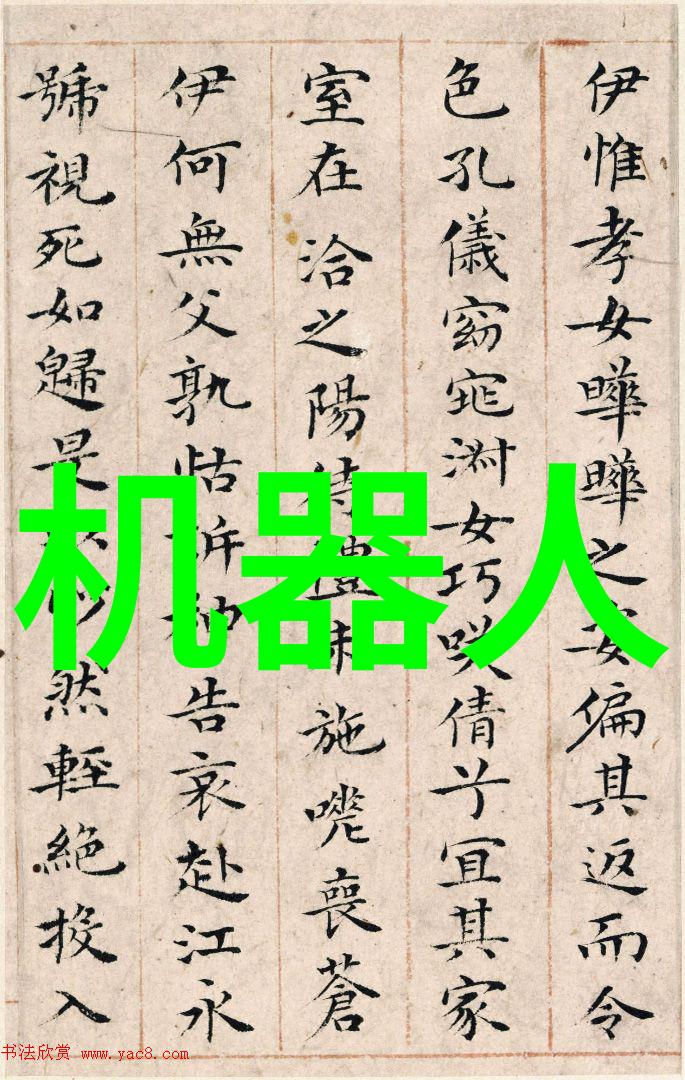 伊惟孝女曄曄之姿偏其返而令
色孔儀窈窕淑女巧咲倩兮宜其家
室在洽之陽待禮未施嗟喪蒼
伊何無父孰怙訴神告哀赴江永
號視死如歸是以眇然輕絕投入
机器人
书法欣赏 www.yac8.com